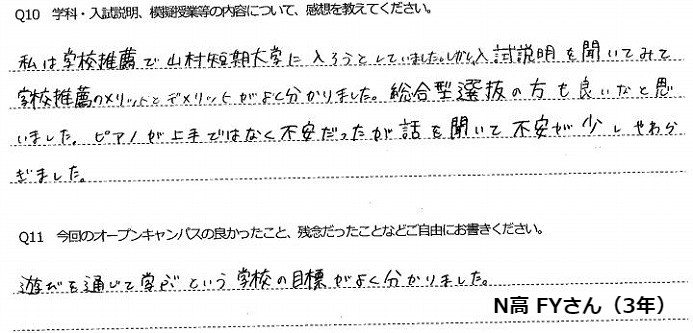 Q10　学科・入試説明、模擬授業等の内容について、感想を教えてください。
私は学校推薦で山村短期大学に入ろうとしていました。しかし、入試説明を聞いてみて
学校推薦のメリットとデメリットがよく分かりました。総合型選抜の方も良いなと思
いました。ピアノが上手ではなく不安だったが話を聞いて不安が少しやわら
ぎました。
Q11　今回のオープンキャンパスの良かったこと、残念だったことなどご自由にお書きください。
遊びを通じて学ぶという学校の目標がよく分かりました。
N高 FYさん（3年）